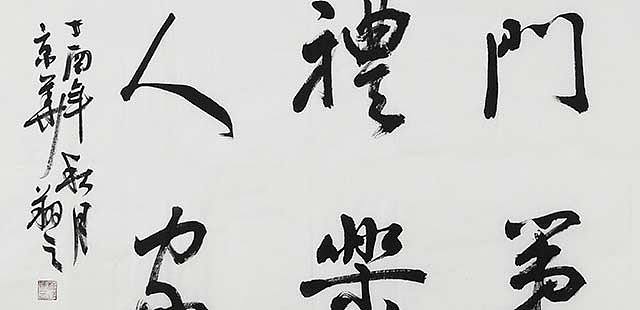 門第
禮樂
人家
丁酉年秋月
京華